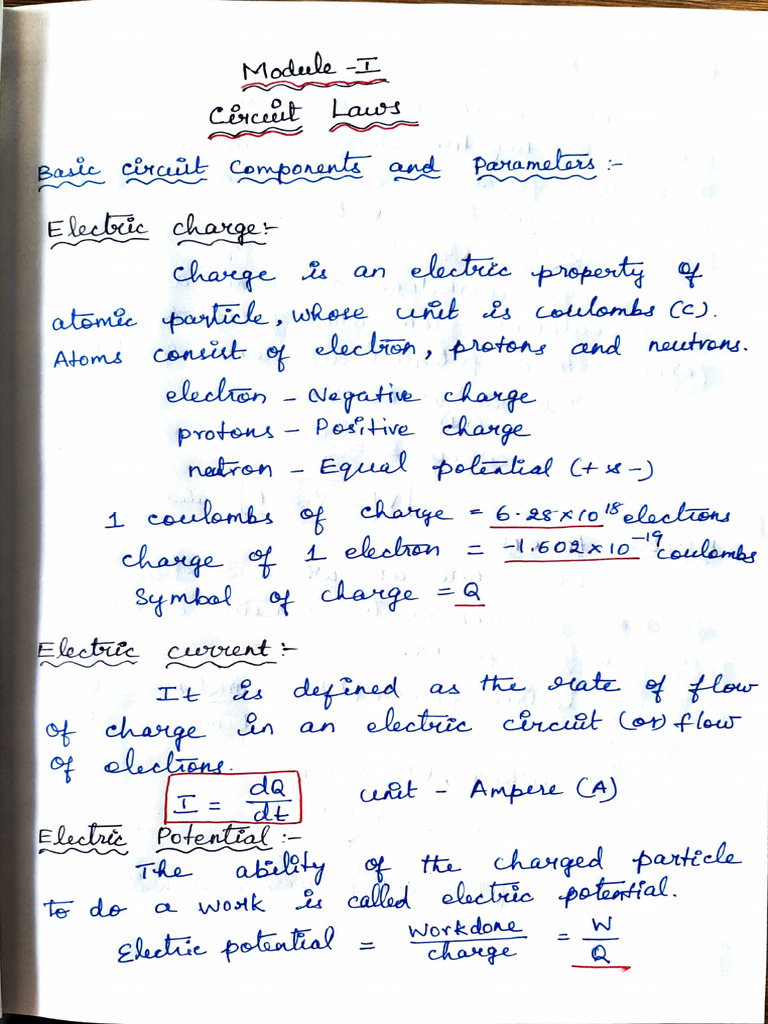 Module - I
Circuit Laws
Basic circuit Components and Parameters :-
Electric charge:-
Charge is an electric property of
atomic particle, whose unit is coulombs (C).
Atoms consist of electron, protons and neutrons.
electron - Negative charge
protons - Positive charge
neutron - Equal potential (+ & -)
1 coulombs of charge = 6.28×10¹⁸ electrons
charge of 1 electron = -1.602×10⁻¹⁹ coulombs
Symbol of charge = Q
Electric current :-
It is defined as the rate of flow
of charge in an electric circuit (or) flow
of electrons.
I = dQ/dt unit - Ampere (A)
Electric Potential :-
The ability of the charged particle
to do a work is called electric potential.
Electric potential = Workdone/charge = W/Q